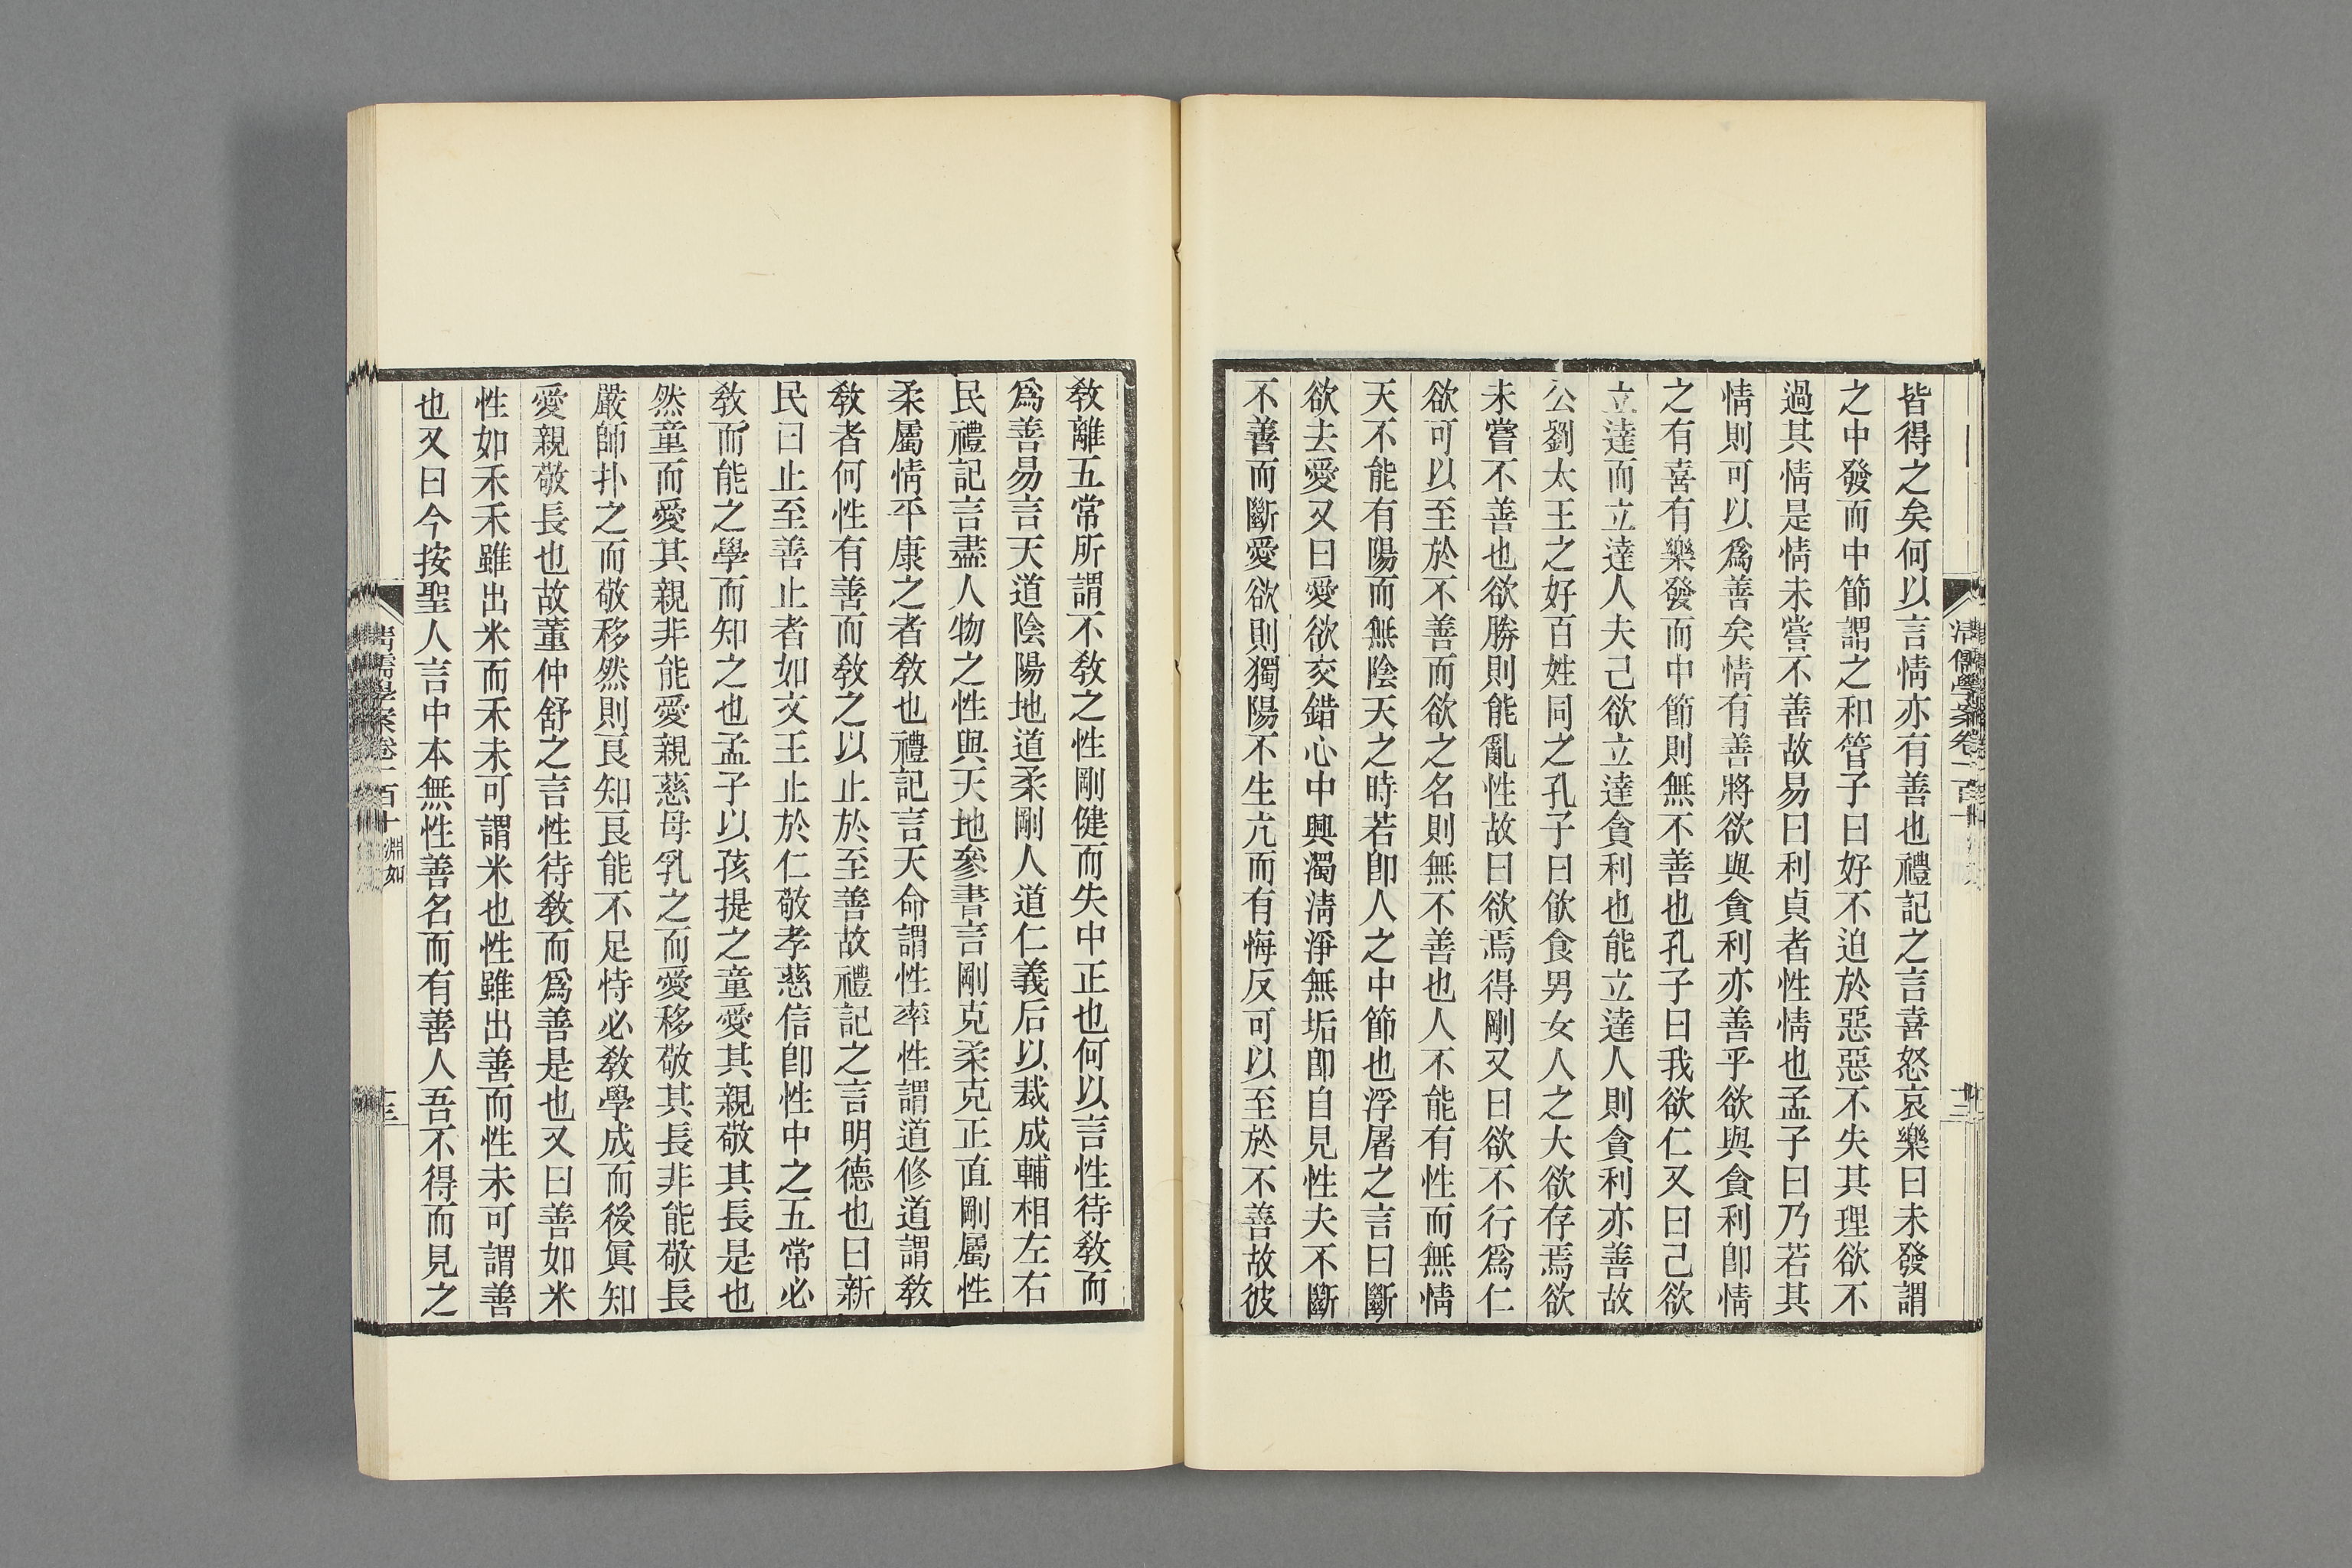 皆得之矣何以言情亦有善也禮記之言喜怒哀樂曰未發謂
之中發而中節謂之和管子曰好不迫於惡惡不失其理欲不
過其情是情未嘗不善故易曰利貞者性情也孟子曰乃若其
情則可以爲善矣情有善將欲與貪利亦善乎欲與貪利卽情
之有喜有樂發而中節則無不善也孔子曰我欲仁又曰己欲
立達而立達人夫己欲立達貪利也能立達人則貪利亦善故
公劉太王之好百姓同之孔子曰飲食男女人之大欲存焉欲
未嘗不善也欲勝則能亂性故曰欲焉得剛又曰欲不行爲仁
欲可以至於不善而欲之名則無不善也人不能有性而無情
天不能有陽而無陰天之時若卽人之中節也浮屠之言曰斷
欲去愛又曰愛欲交錯心中興濁淸淨無垢卽自見性夫不斷
不善而斷愛欲則獨陽不生亢而有悔反可以至於不善故彼
敎離五常所謂不敎之性剛健而失中正也何以言性待敎而
爲善易言天道陰陽地道柔剛人道仁義后以裁成輔相左右
民禮記言盡人物之性與天地參書言剛克柔克正直剛屬性
柔屬情平康之者敎也禮記言天命謂性率性謂道修道謂敎
敎者何性有善而敎之以止於至善故禮記之言明德也曰新
民曰止至善止者如文王止於仁敬孝慈信卽性中之五常必
敎而能之學而知之也孟子以孩提之童愛其親敬其長是也
然童而愛其親非能愛親慈母乳之而愛移敬其長非能敬長
嚴師扑之而敬移然則良知良能不足恃必敎學成而後眞知
愛親敬長也故董仲舒之言性待敎而爲善是也又曰善如米
性如禾禾雖出米而禾未可謂米也性雖出善而性未可謂善
也又曰今按聖人言中本無性善名而有善人吾不得而見之
淸儒學案卷一百十 淵如
十三